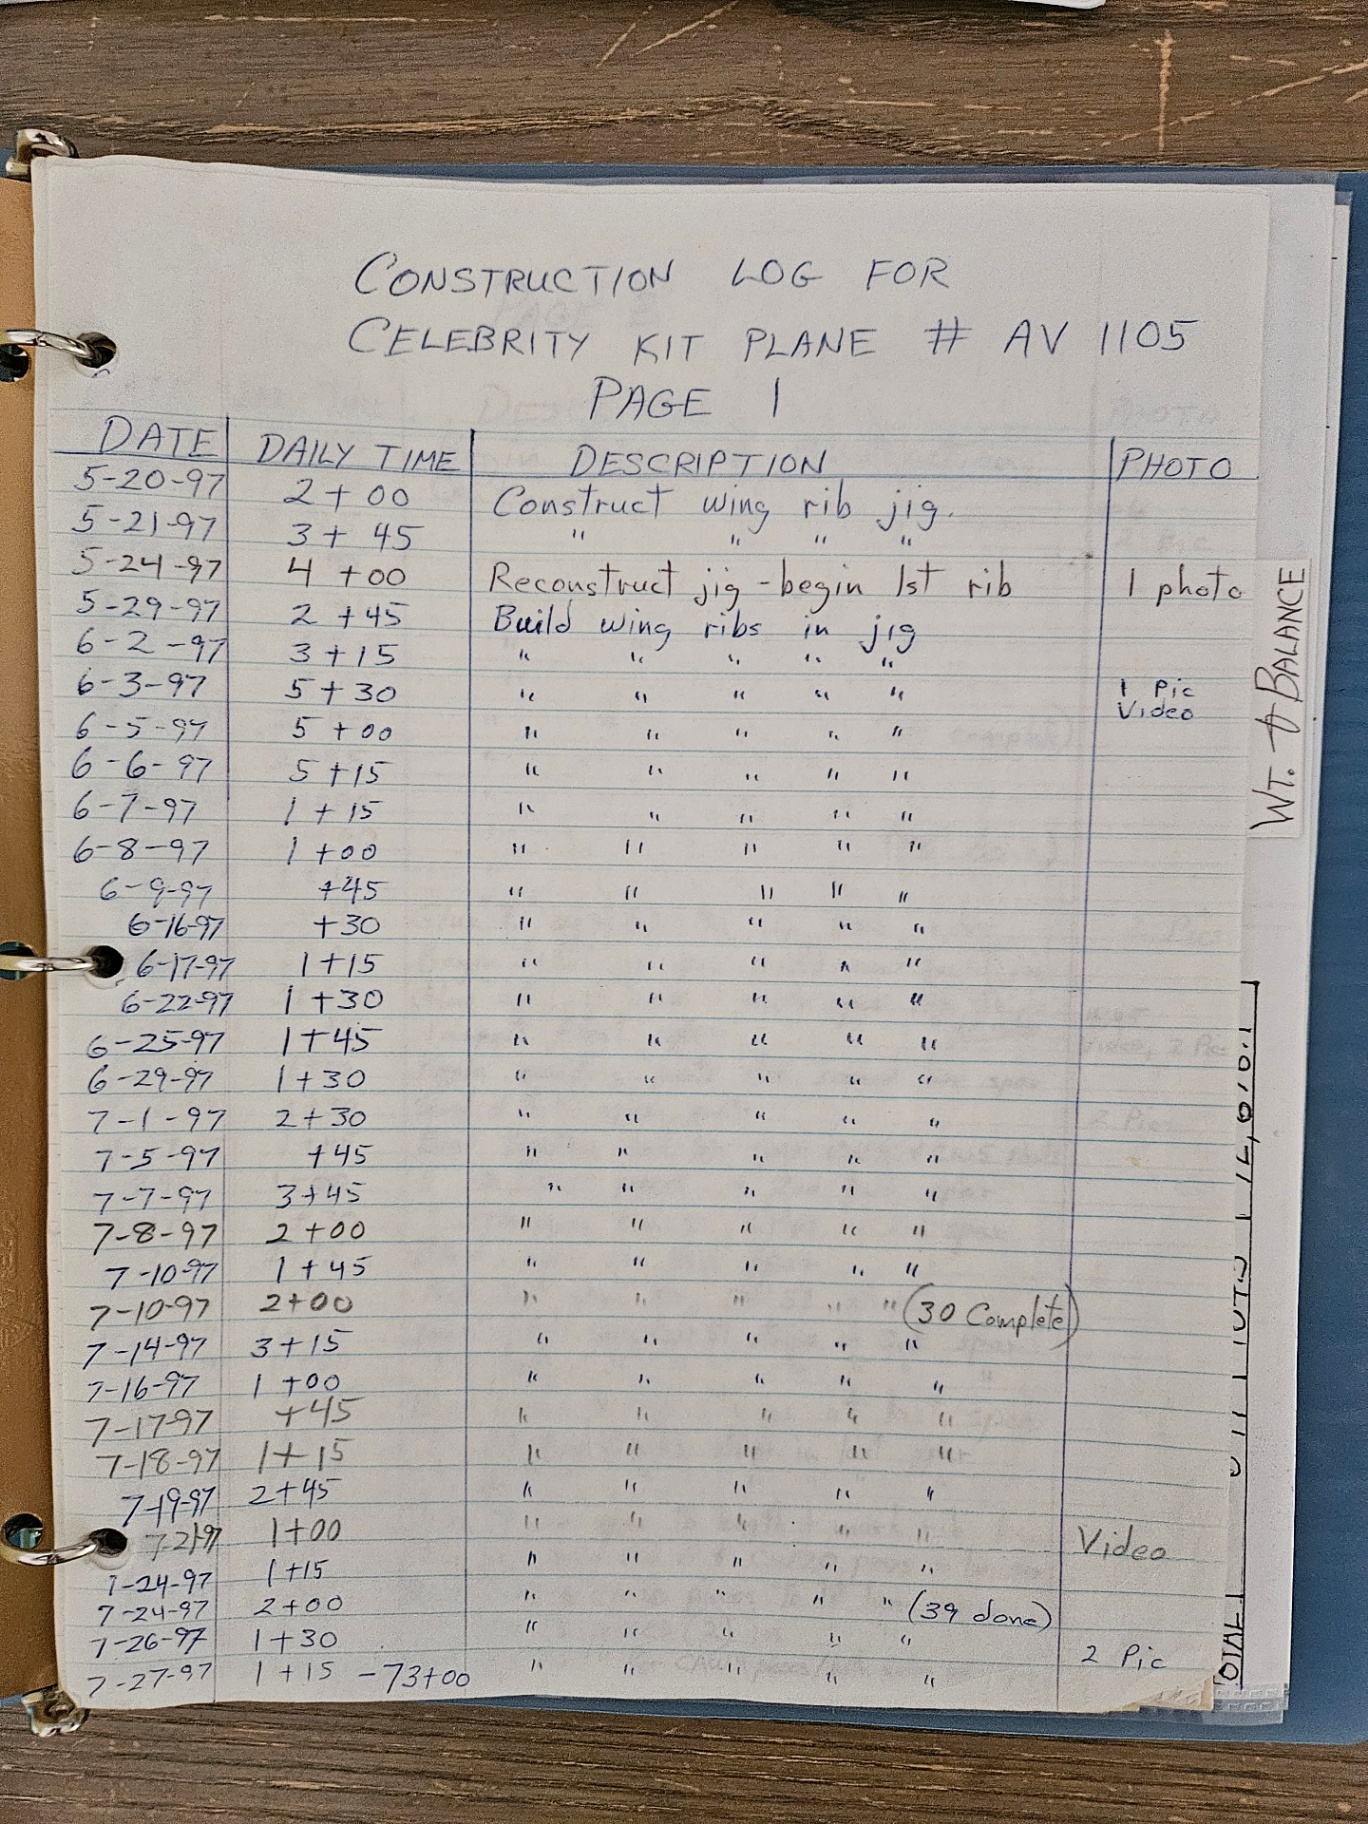 CONSTRUCTION LOG FOR
CELEBRITY KIT PLANE # AV 1105
PAGE 1
DATE DAILY TIME DESCRIPTION PHOTO
5-20-97 2+00 Construct wing rib jig.
5-21-97 3+45 " " " "
5-24-97 4+00 Reconstruct jig - begin 1st rib 1 photo
5-29-97 2+45 Build wing ribs in jig
6-2-97 3+15 " " " " "
6-3-97 5+30 " " " " " 1 Pic Video
6-5-97 5+00 " " " " "
6-6-97 5+15 " " " " "
6-7-97 1+15 " " " " "
6-8-97 1+00 " " " " "
6-9-97 +45 " " " " "
6-16-97 +30 " " " " "
6-17-97 1+15 " " " " "
6-22-97 1+30 " " " " "
6-25-97 1+45 " " " " "
6-29-97 1+30 " " " " "
7-1-97 2+30 " " " " "
7-5-97 +45 " " " " "
7-7-97 3+45 " " " " "
7-8-97 2+00 " " " " "
7-10-97 1+45 " " " " "
7-10-97 2+00 " " " " " (30 Complete)
7-14-97 3+15 " " " " "
7-16-97 1+00 " " " " "
7-17-97 +45 " " " " "
7-18-97 1+15 " " " " "
7-19-97 2+45 " " " " "
7-21-97 1+00 " " " " " Video
7-24-97 1+15 " " " " "
7-24-97 2+00 " " " " " (39 done)
7-26-97 1+30 " " " " "
7-27-97 1+15 -73+00 " " " " " 2 Pic
WT. & BALANCE